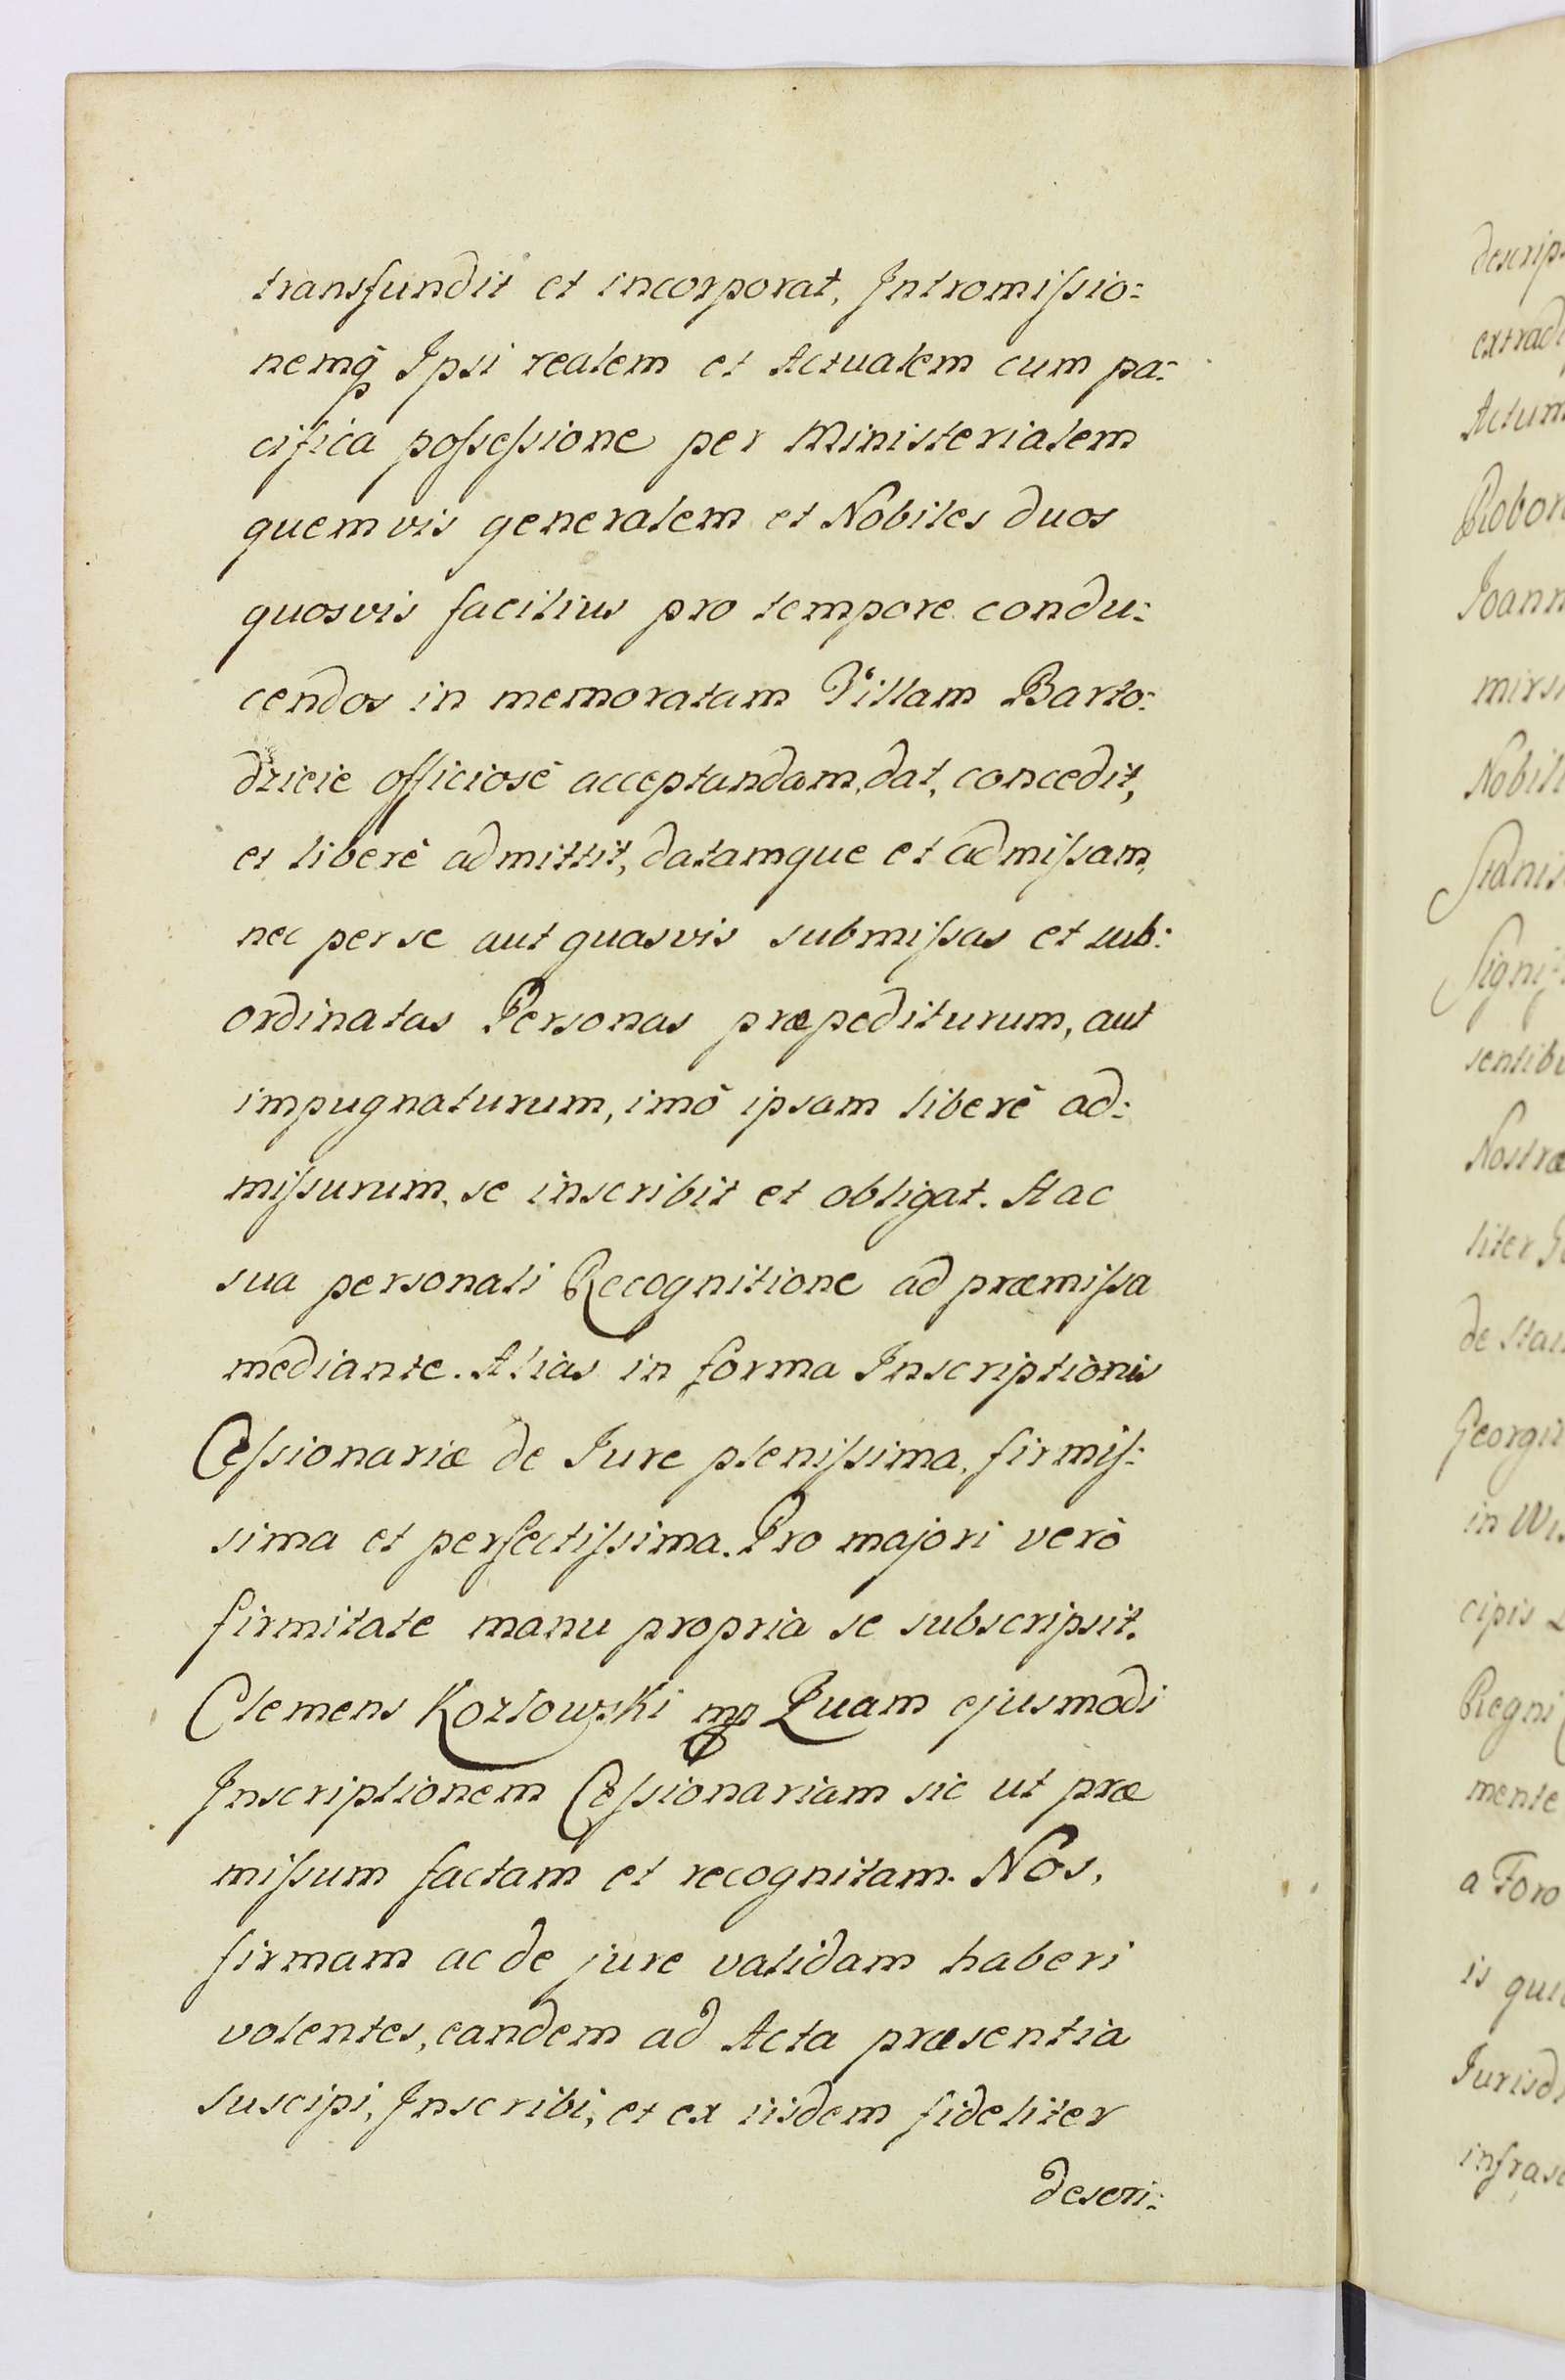 transfundit et incorporat, Intromiſsio:
nemq̃ Ipsi realem et Actualem cum pa:
cifica poſseſsione per Ministerialem
quemvis generalem et Nobiles duos
quosvis facilius pro tempore condu:
cendos in memoratam Villam Barto:
dzieie officiosè acceptandam, dat, concedit,
et liberè admittit, datamque et admiſsam,
nec per se aut quasvis submiſsas et sub:
ordinatas Personas præpediturum, aut
impugnaturum, imò ipsam liberè ad:
miſsurum, se inscribit et obligat. Hac
sua personali Recognitione ad præmiſsa
mediante. Alias in forma Inscriptionis
Ceſsionariæ de Iure pleniſsima, firmiſ:
sima et perfectiſsima. Pro majori verò
firmitate manu propria se subscripsit.
Clemens Kozlowski mp Quam ejusmodi
Inscriptionem Ceſsionariam sic ut præ
miſsum factam et recognitam. Nos,
firmam ac de jure validam haberi
volentes, eandem ad Acta præsentia
suscipi, Inscribi, et ex iisdem fideliter
descri:
descrip
extradi
Actum
Robor
Joann
mirsi
Nobili
Stanis
Signif
sentibu
Nostræ
liter
de Stan
Georgii
in
cipis
Regni
mente
a Foro
is qui
Jurisdi
infrasc